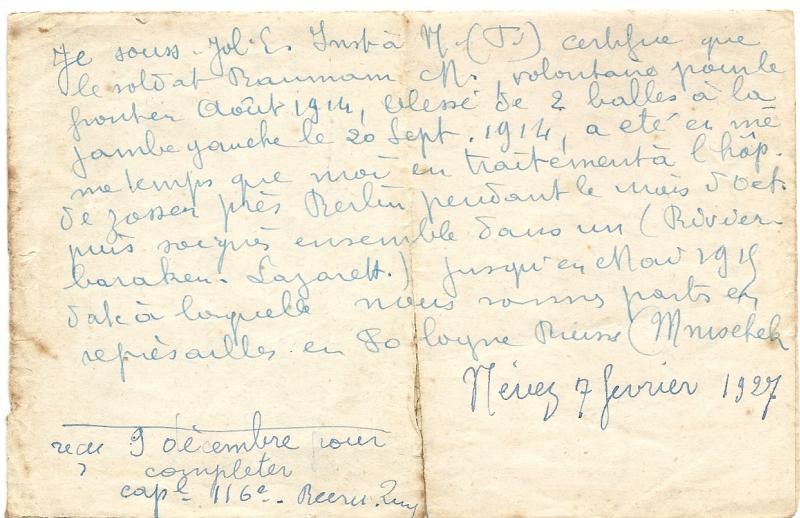 Je souss. Jol. E. Inst. à N. (F.) certifie que
le soldat M., volontaire pour le
front en Août 1914, blessé de 2 balles à la
jambe gauche le 20 Sept. 1914, a été en mê
me temps que moi en traitement à l'hôp.
de Zossen près Berlin pendant le mois d'Oct.
puis soignés ensemble dans un (
baraken-Lazarett.) jusqu'en Mai 1915
date à laquelle nous sommes partis en
représailles en Pologne Russe (
Névez 7 février 1927
9 décembre pour
completer
cap<sup>le</sup> 116<sup>e</sup>